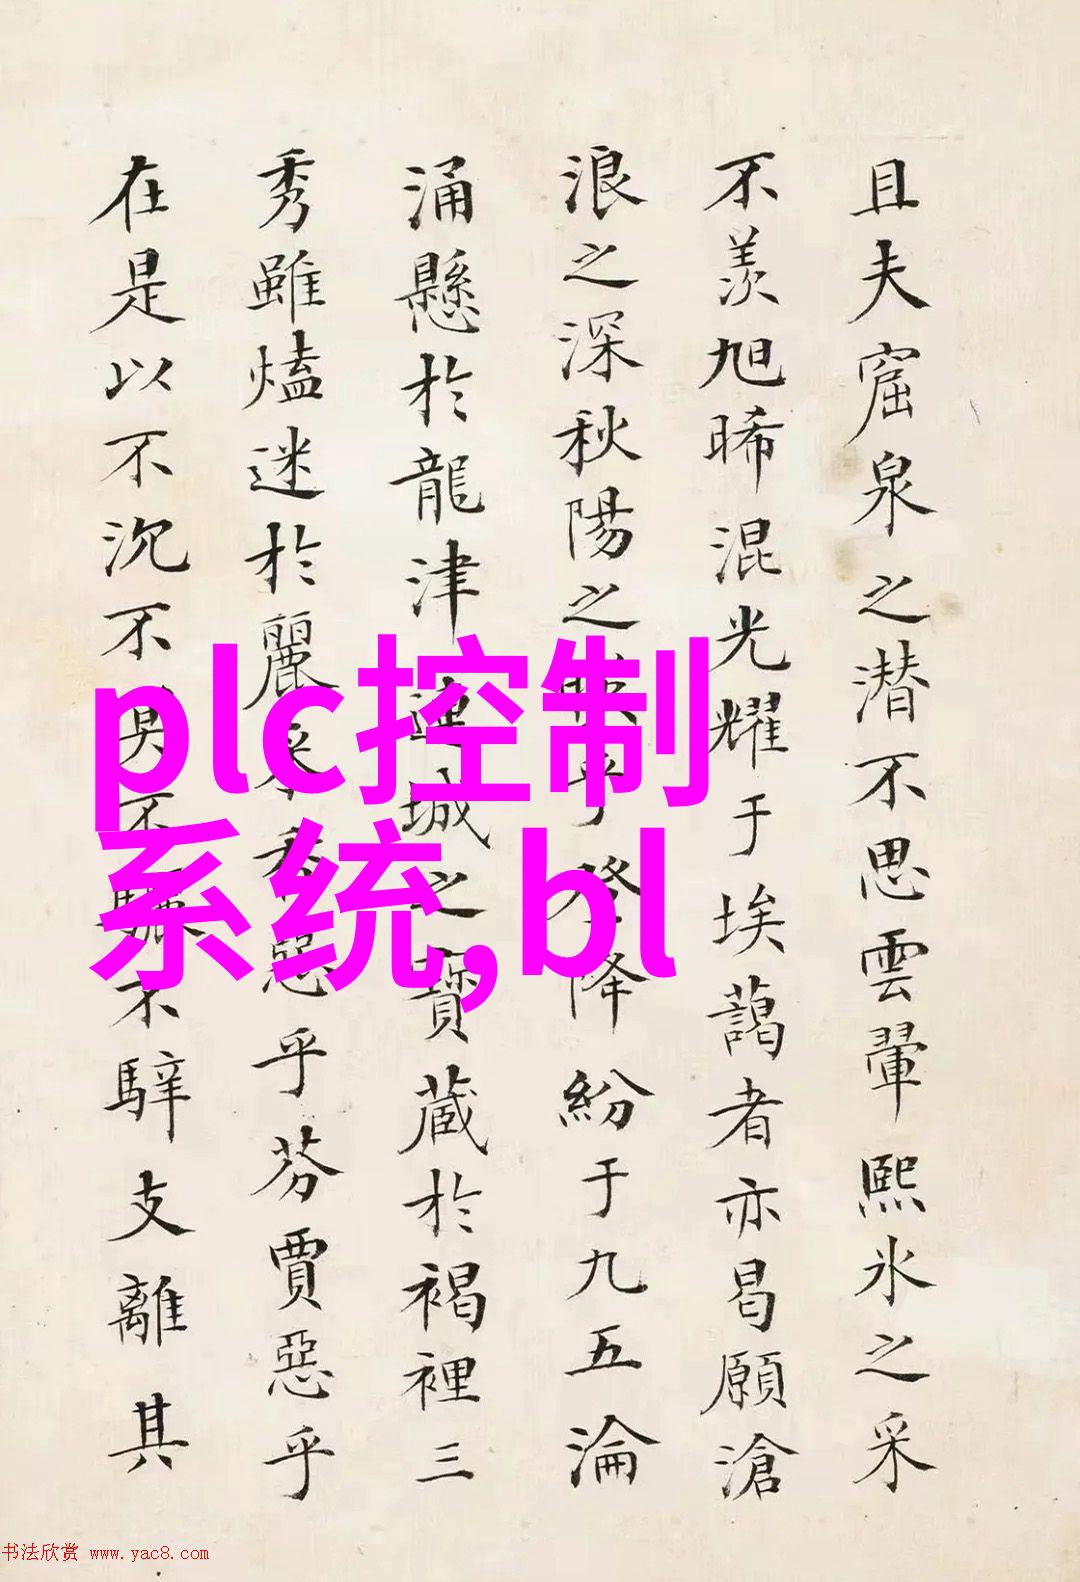 且夫窟泉之潜不思雲翬熙氷之采
不羨旭晞混光耀于埃藹者亦曷願滄
浪之深秋陽之映乎登降紛于九五淪
涌懸於龍津連城之寶藏於褐裡三
秀雖熆迷於麗采秀惡乎芬賈惡乎
在是以不沉不臭不驪不騂支離其
plc控制
系统,bl
书法欣赏 www.yac8.com